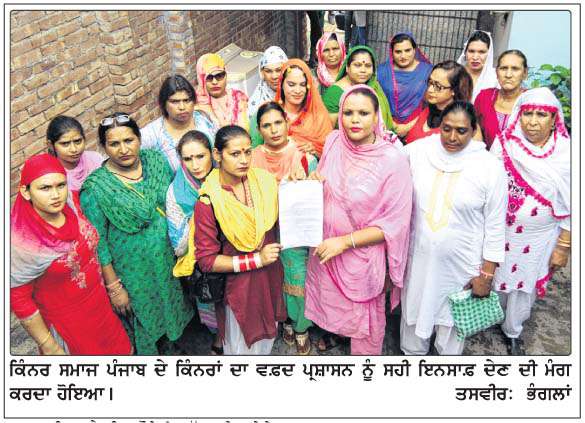 ਕਿੰਨਰ ਸਮਾਜ ਪੰਜਾਬ ਦੇ ਕਿੰਨਰਾਂ ਦਾ ਵਫ਼ਦ ਪ੍ਰਸ਼ਾਸਨ ਨੂੰ ਸਹੀ ਇਨਸਾਫ਼ ਦੇਣ ਦੀ ਮੰਗ
ਕਰਦਾ ਹੋਇਆ। ਤਸਵੀਰ: ਭੰਗਲਾਂ